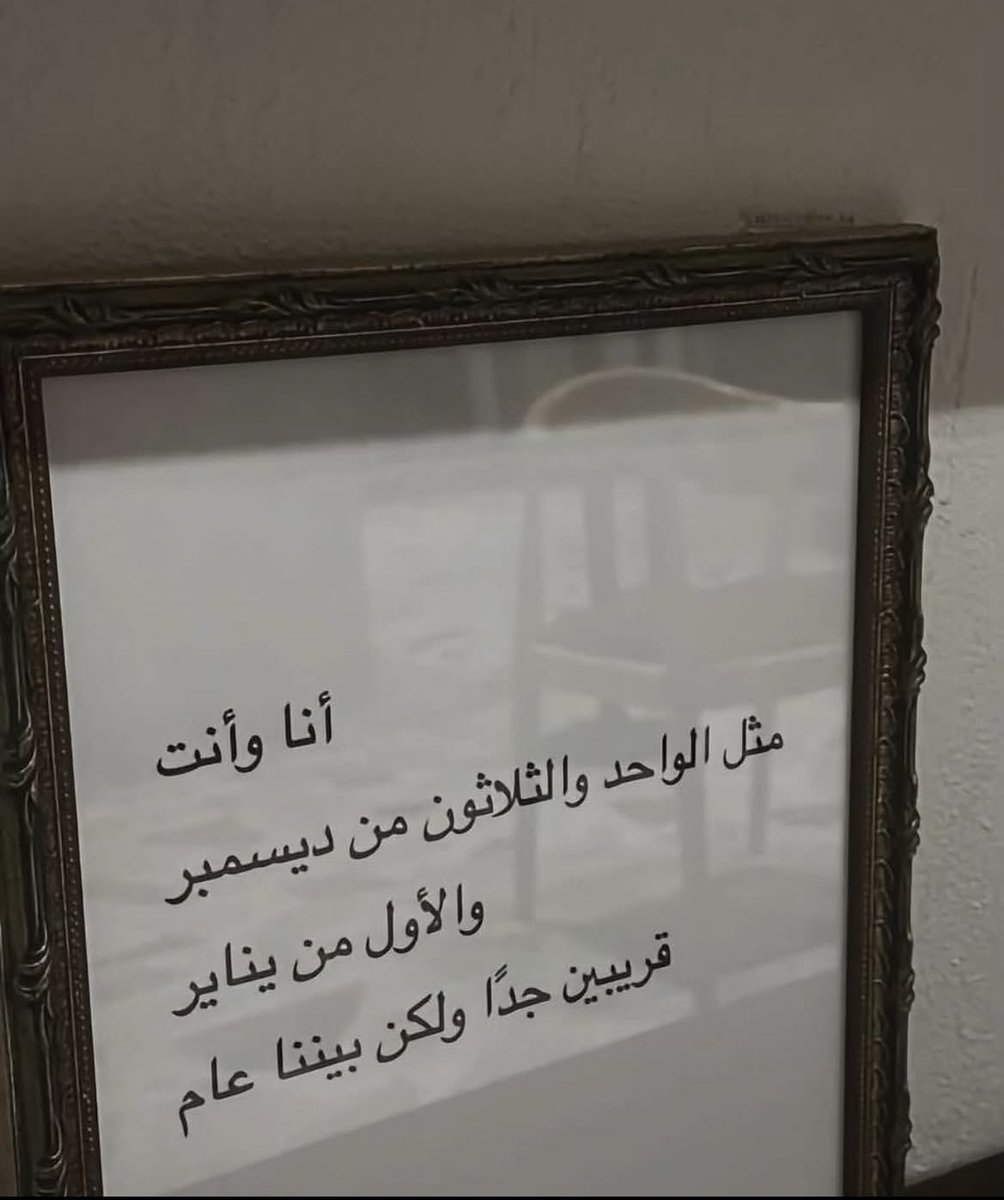 أنا وأنت
مثل الواحد والثلاثون من ديسمبر
والأول من يناير
قريبين جدًا ولكن بيننا عام